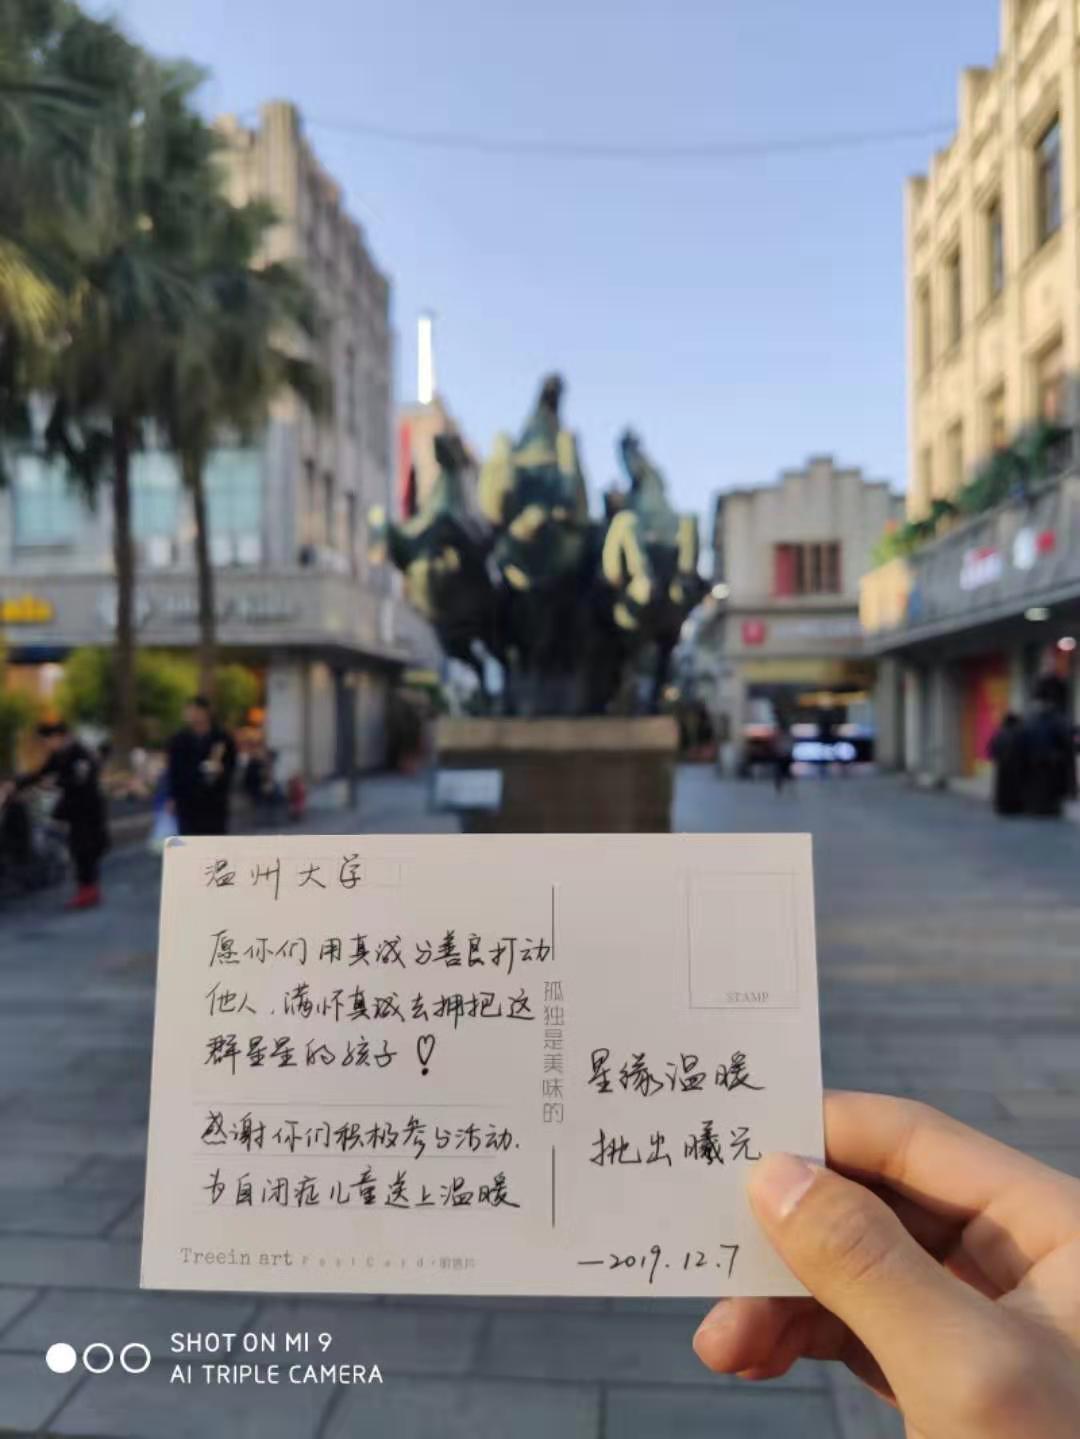 温州大学
愿你们用真诚与善良打动
他人,满怀真诚去拥抱这
群星星的孩子♡
感谢你们积极参与活动.
为自闭症儿童送上温暖
孤独是美味的
Treein art PostCard·明信片
STAMP
星缘温暖
挑出曦光
—2019.12.7
SHOT ON MI 9
AI TRIPLE CAMERA